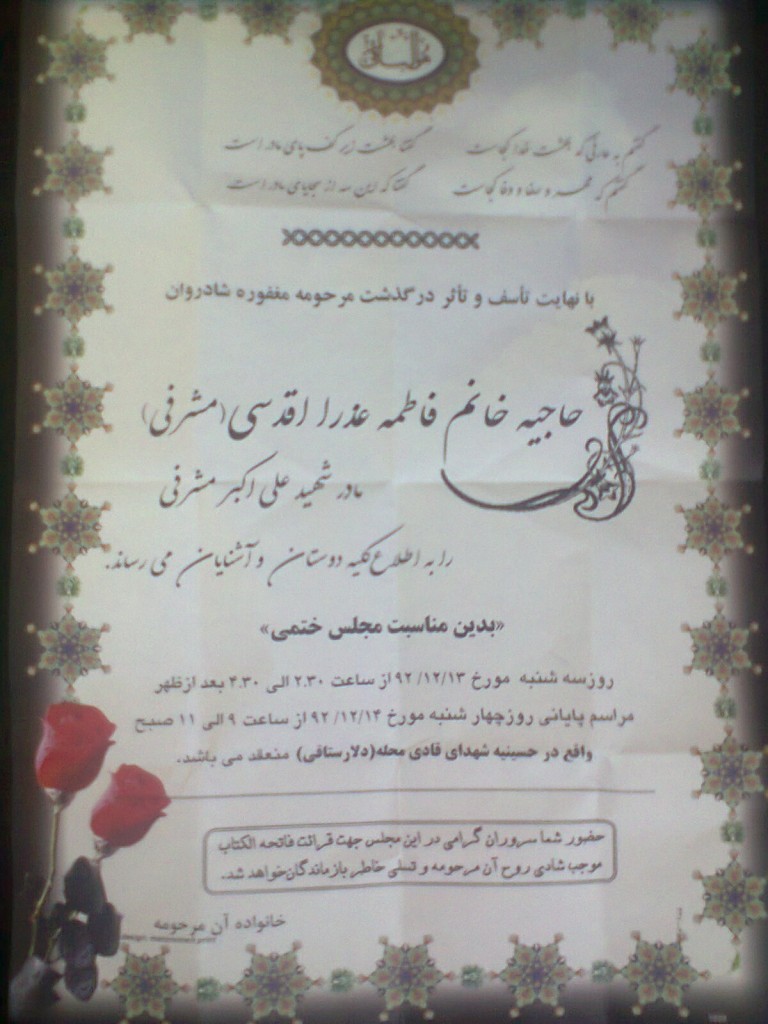 هوالباقی
گفتم به عارفی که بهشت خدا کجاست گفتا بهشت زیر کف پای مادر است
گفتم که مهر و صفا و وفا کجاست گفتا که این سه از سجایای مادر است
با نهایت تأسف و تأثر درگذشت مرحومه مغفوره شادروان
حاجیه خانم فاطمه عذرا اقدسی (مشرفی)
مادر شهید علی اکبر مشرفی
را به اطلاع کلیه دوستان و آشنایان می رساند.
«بدین مناسبت مجلس ختمی»
روز سه شنبه مورخ ۹۲/۱۲/۱۳ از ساعت ۲.۳۰ الی ۴.۳۰ بعد ازظهر
مراسم پایانی روز چهار شنبه مورخ ۹۲/۱۲/۱۴ از ساعت ۹ الی ۱۱ صبح
واقع در حسینیه شهدای قادی محله (دلارستاقی) منعقد می باشد.
حضور شما سروران گرامی در این مجلس جهت قرائت فاتحه الکتاب
موجب شادی روح آن مرحومه و تسلی خاطر بازماندگان خواهد شد.
خانواده آن مرحومه